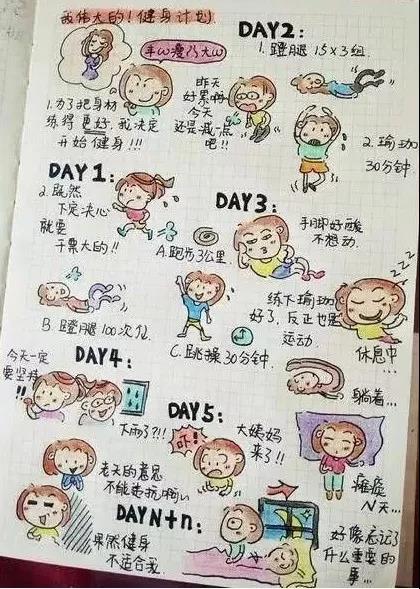 我伟大的！健身计划
手ω瘦乃大ω
1.为了把身材
练得更好,我决定
开始健身!!!
DAY1:
2.既然
下定决心
就要
干票大的!!
A.跑步3公里.
B.蹬腿100次/
C.跳操30分钟.
DAY2:
昨天
好累啊
今天
还是减一点
吧!!
1.蹬腿15×3组.
2.瑜珈
30分钟.
DAY3:
手脚好酸
不想动.
练下瑜珈
好了,反正也是
运动.
休息中...
躺着...
DAY4:
今天一定
要坚持
!!
下雨了?!!
老天的意思
不能违抗啊
DAY5:
吓!
大姨妈
来了!!
瘫痪
N天...
DAYN+n:
果然健身
不适合我.
好像忘记了
什么重要的
事...